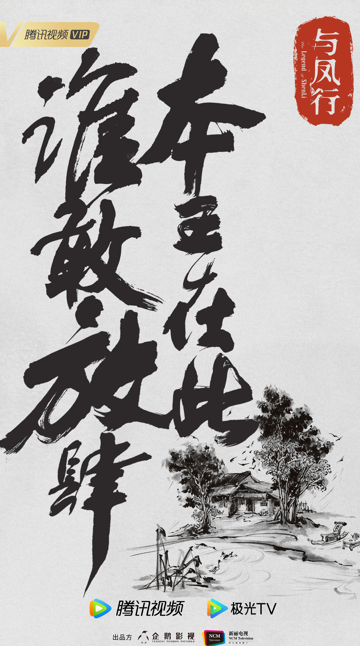 腾讯视频 VIP
与凤行
The Legend of ShenLi
本王在此
谁敢放肆
腾讯视频 极光TV
出品方 企鹅影视 NCM 新丽电视
NCM Television